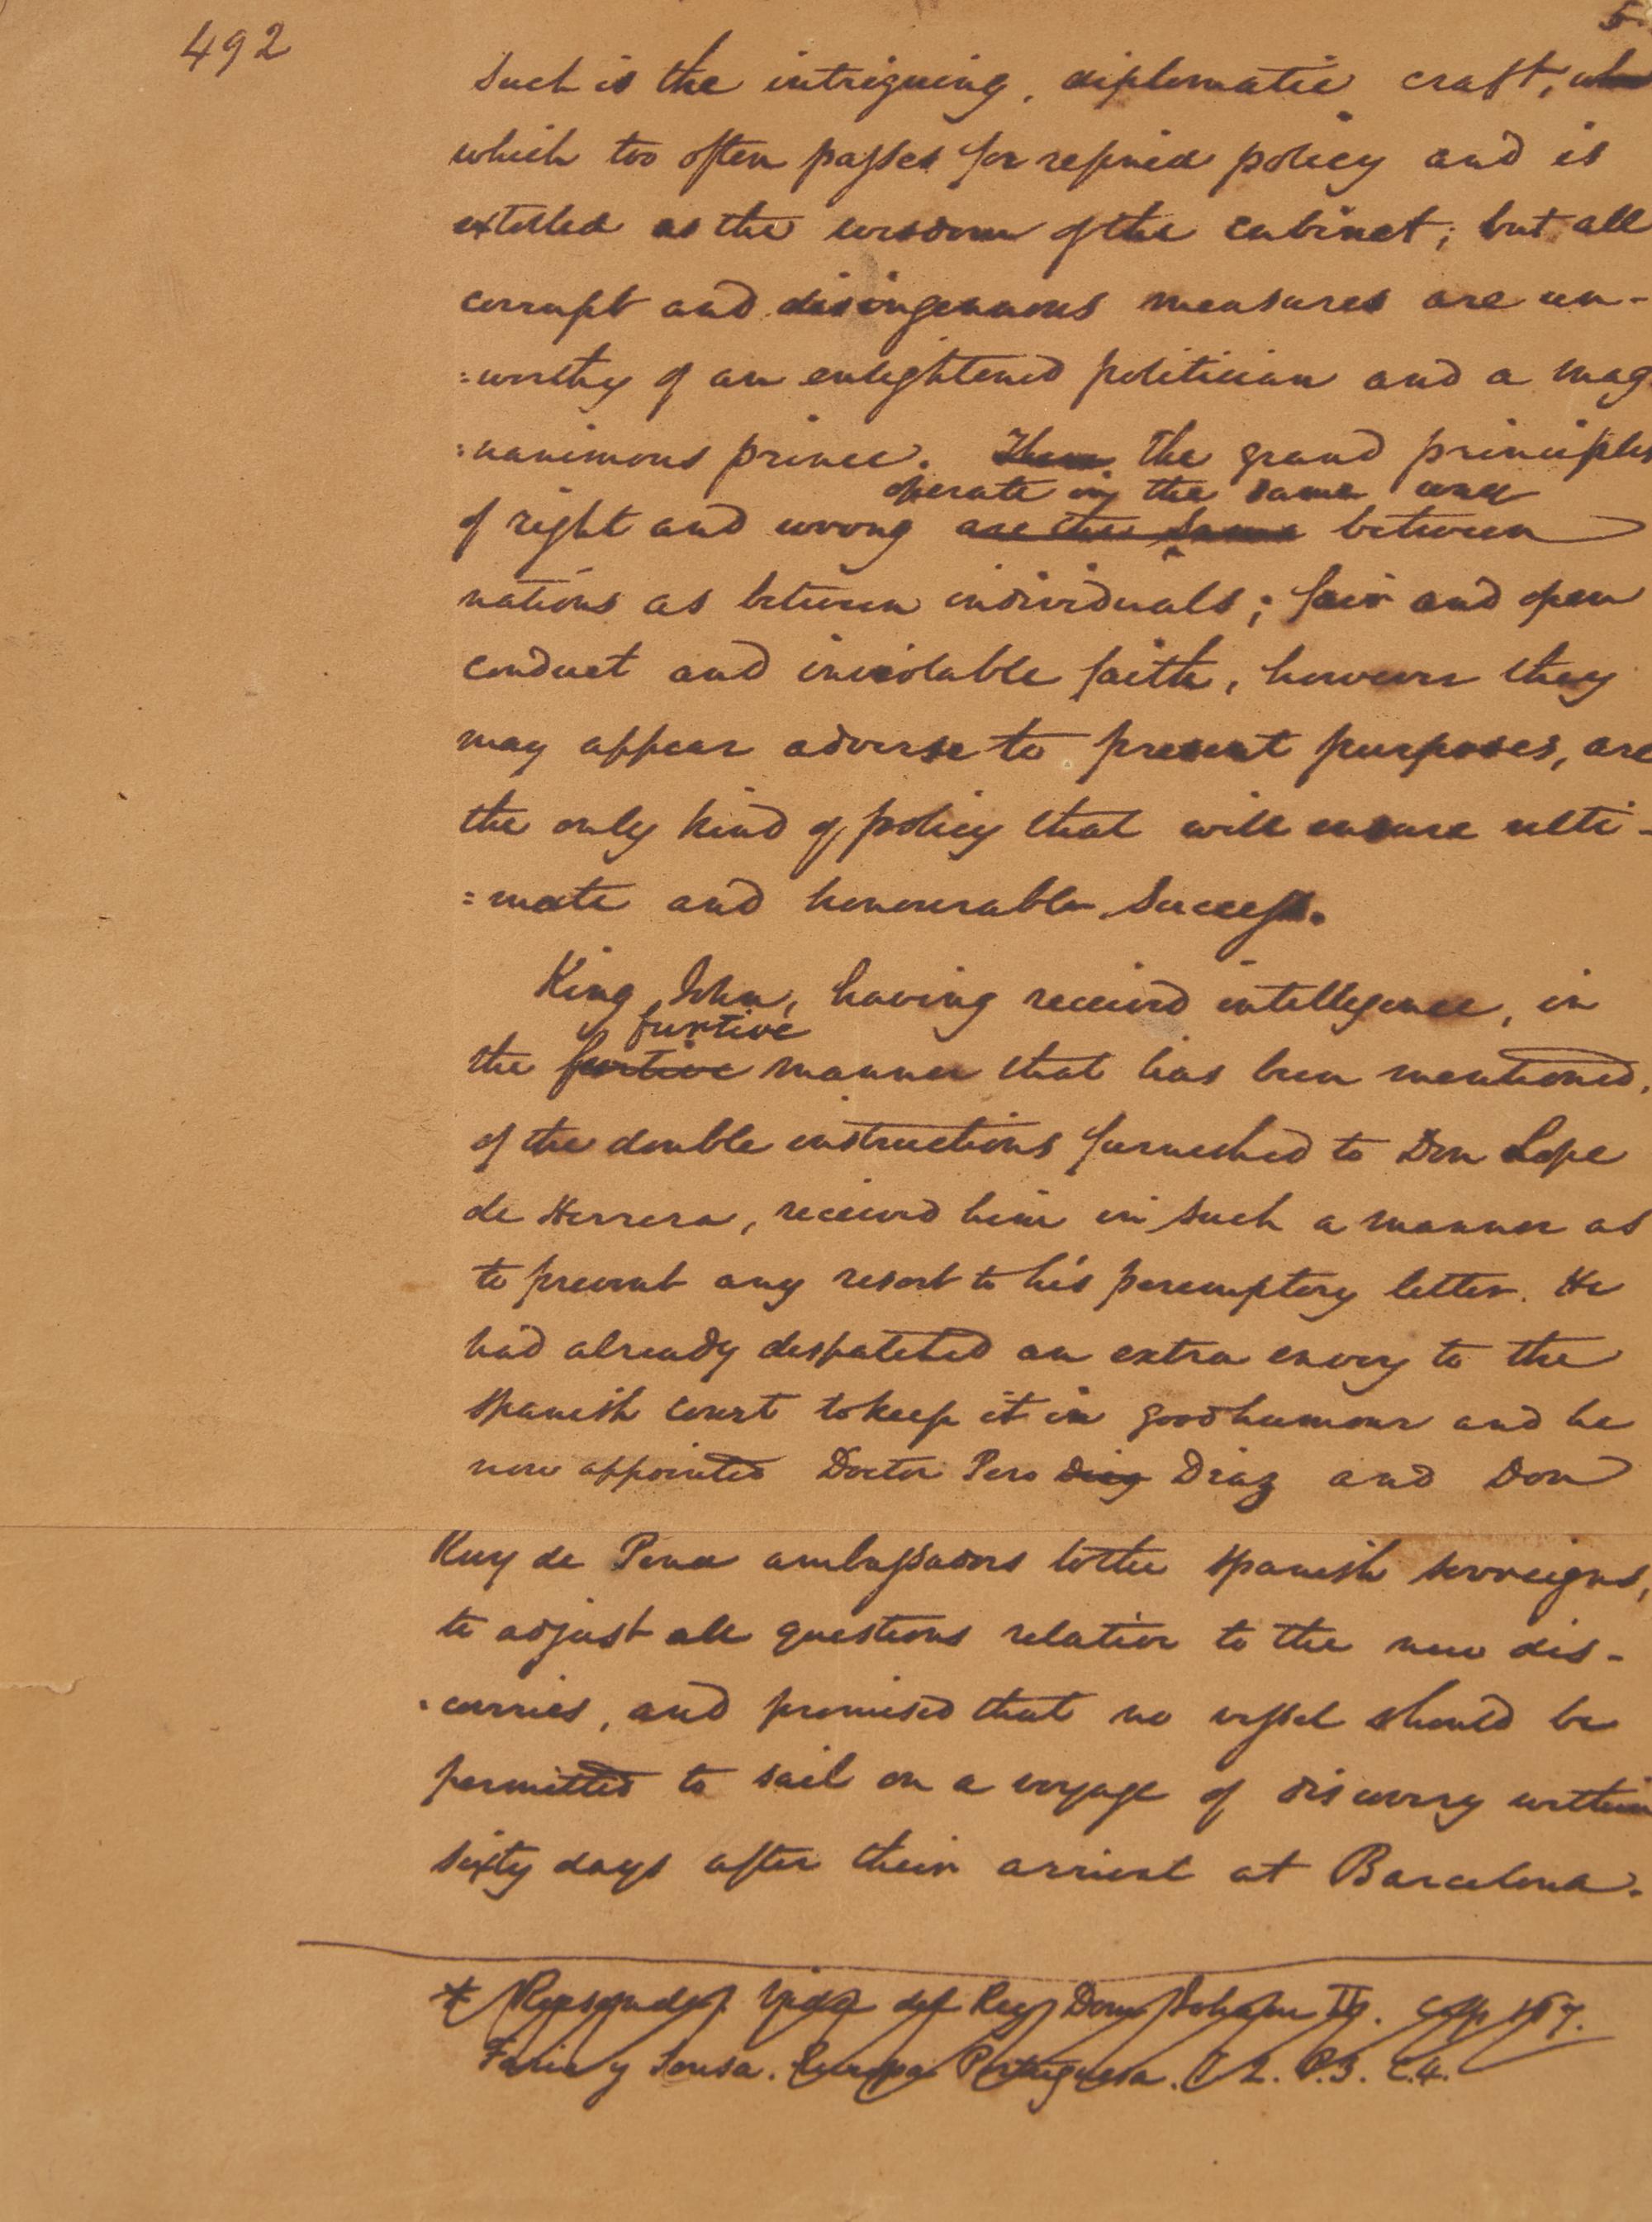 492
5
Such is the intriguing, diplomatic craft,
which too often passes for refined policy and is
extolled as the wisdom of the cabinet; but all
corrupt and disingenuous measures are un-
=worthy of an enlightened politician and a mag
=nanimous prince. Them The grand principles
operate in the same way
of right and wrong are the same between
nations as between individuals; fair and open
conduct and inviolable faith, however they
may appear adverse to present purposes, are
the only kind of policy that will ensure ulti-
=mate and honourable success.
King John, having received intelligence, in
furtive
the furtive manner that has been mentioned,
of the double instructions furnished to Don Lope
de Herrera, received him in such a manner as
to prevent any resort to his peremptory letter. He
had already despatched an extra envoy to the
Spanish court to keep it in good humour and he
now appointed Doctor Pero Diaz and Don
Ruy de Pena ambassadors to the Spanish sovreigns,
to adjust all questions relative to the new dis-
-coveries, and promised that no vessel should be
permitted to sail on a voyage of discovery within
sixty days after their arrival at Barcelona.
* Resende, vida del Rey Dom Joham II. Cap 167.
Faria y Sousa. Europa Portuguesa. T 2. P.3. C.4.